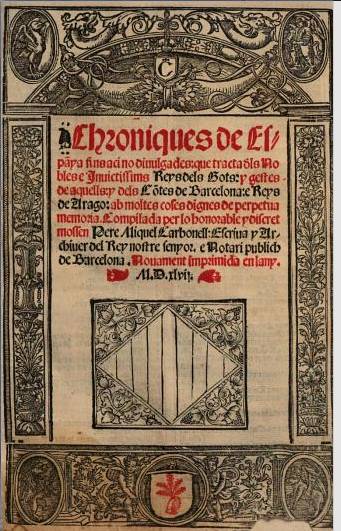 C
Chroniques de Es/
pãya fins aci no diuulgades: que tracta d̃ls No
bles e Inuictissims Reys dels Gots: y gestes
de aquells: y dels Cõtes de Barcelona: e Reys
de Arago: ab moltes coses dignes de perpetua
memoria. Compilada per lo honorable y discret
mossen Pere Miquel Carbonell: Escriua y Ar-
chiuer del Rey nostre senyor. e Notari publich
de Barcelona. Nouament imprimida en lany.
M.D.xlvij.